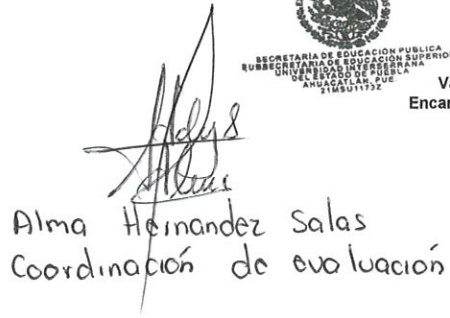 SECRETARÍA DE EDUCACIÓN PUBLICA
SUBSECRETARIA DE EDUCACIÓN SUPERIOR
UNIVERSIDAD INTERSERRANA
DEL ESTADO DE PUEBLA
AHUACATLÁN, PUE.
21MSU1173Z
Encar
Alma Hernandez Salas
Coordinación de evaluación